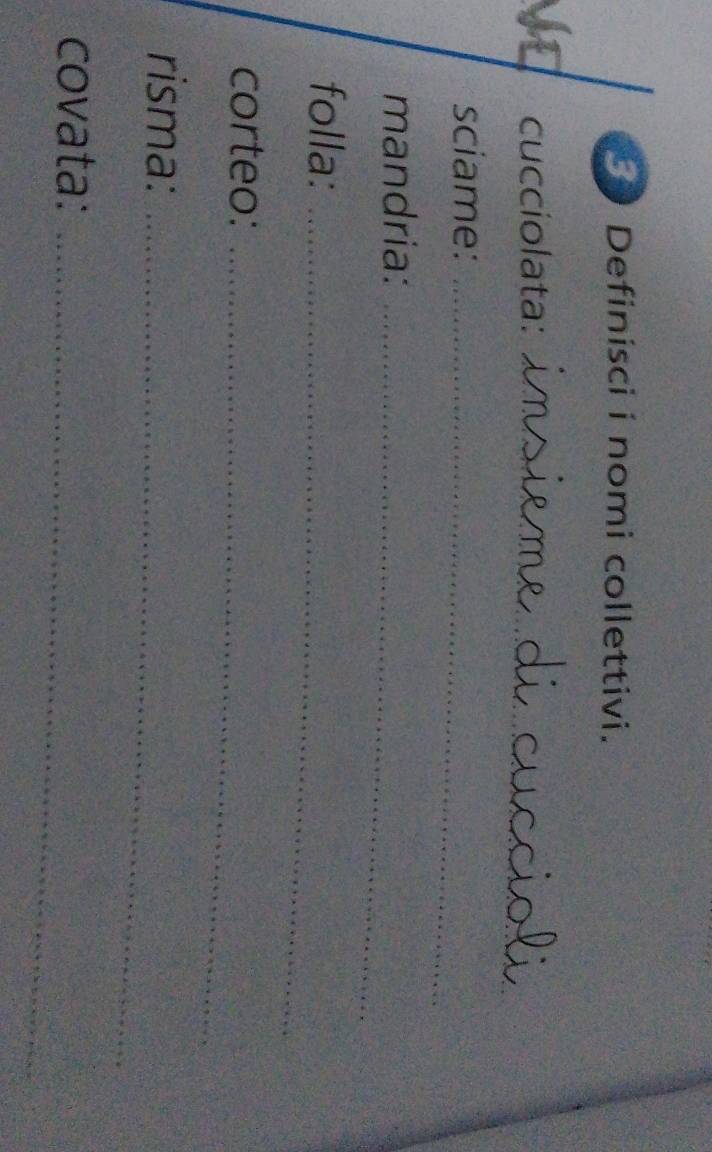 3 Definisci i nomi collettivi.
cucciolata: insieme di cuccioli
sciame: ..........
mandria: ..........
folla: ..........
corteo: ..........
risma: ..........
covata: ..........